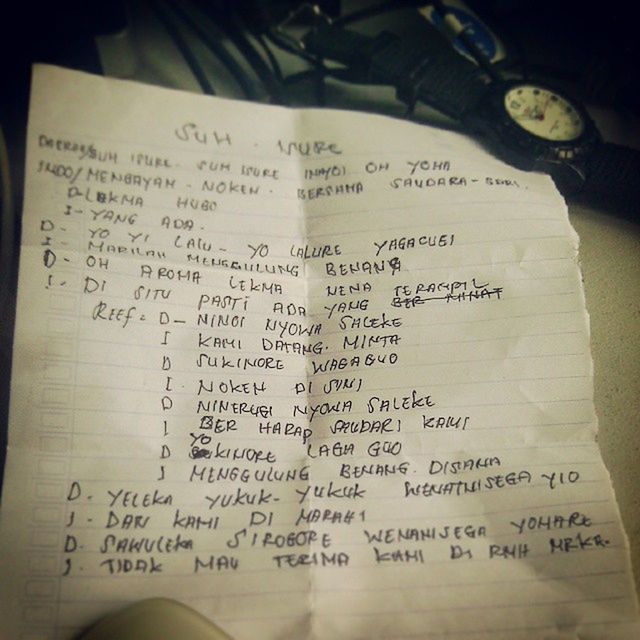 SUH - ISURE
DAERAH/SUH ISURE. SUH ISURE INAYOI OH YOHA
INDO/MENGAYAM - NOKEN - BERSAMA SAUDARA-SDRI.
D-LEKMA HUGO
I-YANG ADA.
D- YO YI LALU- YO LALURE YAGAGUEI
I- MARILAH MENGGULUNG BENANG
D- OH AROMA LEKMA NENA
I. DI SITU PASTI ADA YANG TERAMPIL BER MINAT
REEF= D- NINOI NYOWA SALEKE
I KAMI DATANG. MINTA
D SUKINORE WAGAGUO
I. NOKEN DI SINI
D NINERUGI NYOWA SALEKE
I BER HARAP SAUDARI KAMI
D YOKINORE LAGA GUO
I MENGGULUNG BENANG. DISANA
D. YELEKA YUKUK-YUKUK WENATNISEGA YIO
I. DAN KAMI DI MARAHI
D. SAWULEKA SIROGORE WENANISEGA YOHARE
I. TIDAK MAU TERIMA KAMI DI RMH MRKA.